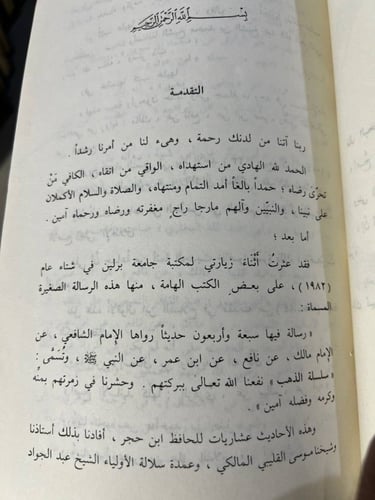 بسم الله الرحمن الرحيم
التقدمة
ربنا آتنا من لدنك رحمة ، وهيء لنا من أمرنا رشداً .
الحمد لله الهادي من استهداه ، الواقي من اتقاه ، الكافي مَنْ
تحرَّى رضاه ؛ حمداً بالغاً أمد التمام ومنتهاه، والصلاة والسلام الأكملان
على نبينا ، والنبيّين وآلهم مارجا راجٍ مغفرته ورضاه ورحماه آمين .
أما بعد ؛
فقد عثرتُ أثناءَ زيارتي لمكتبة جامعة برلين في شتاء عام
(١٩٨٢) ، على بعضِ الكتب الهامة ، منها هذه الرسالة الصغيرة
المسماة :
« رسالة فيها سبعة وأربعون حديثاً رواها الإمام الشافعي ، عن
الإمام مالك ، عن نافع ، عن ابن عمر ، عن النبي ﷺ ، وتُسَمَّى :
« سلسلة الذهب » نفعنا الله تعالى ببركتهم . وحشرنا في زمرتهم بمنِّه
وكرمه وفضله آمين » .
وهذه الأحاديث عشاريات للحافظ ابن حجر ، أفادنا بذلك أستاذنا
وشيخنا موسى القليبي المالكي ، وعمدة سلالة الأولياء الشيخ عبد الجواد